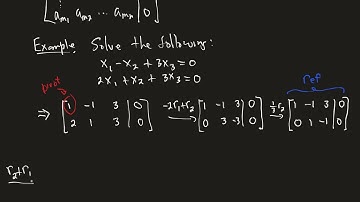 [ ⋮
a_m1 a_m2 ... a_mn | 0 ]
Example. Solve the following:
x₁ - x₂ + 3x₃ = 0
2x₁ + x₂ + 3x₃ = 0
pivot
ref
⇒ [ 1 -1 3 | 0 ; 2 1 3 | 0 ] -2r₁+r₂ → [ 1 -1 3 | 0 ; 0 3 -3 | 0 ] ⅓r₂ → [ 1 -1 3 | 0 ; 0 1 -1 | 0 ]
r₂+r₁